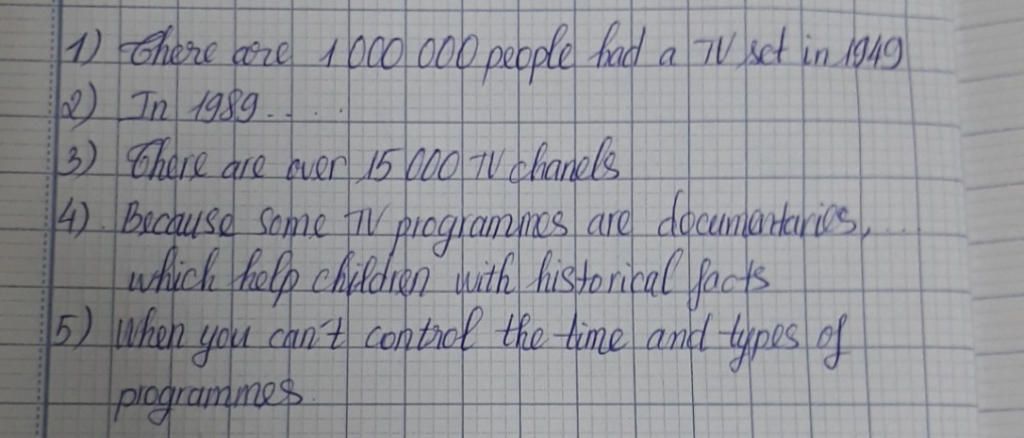 1) There are 1 000 000 people had a TV set in 1949
2) In 1989.....
3) There are over 15 000 TV chanels
4). Because some TV programmes are documentaries, ...
which help children with historical facts
5) When you can't control the time and types of
programmes.